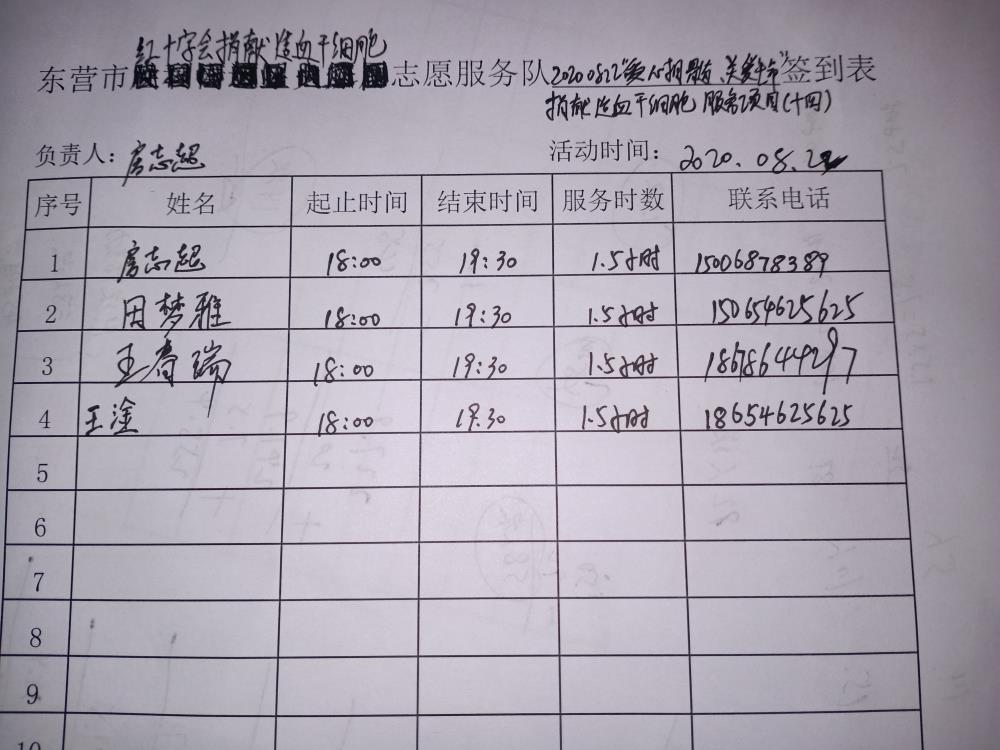 红十字会捐献造血干细胞
东营市志愿服务队20200822"爱心相髓、关爱生命"签到表
捐献造血干细胞 服务项目(十四)
负责人:房志超 活动时间: 2020.08.22
序号 姓名 起止时间 结束时间 服务时数 联系电话
1 房志超 18:00 19:30 1.5小时 15006878389
2 田梦雅 18:00 19:30 1.5小时 150654625625
3 王春瑞 18:00 19:30 1.5小时 18678644297
4 王淦 18:00 19:30 1.5小时 18654625625
5
6
7
8
9
10